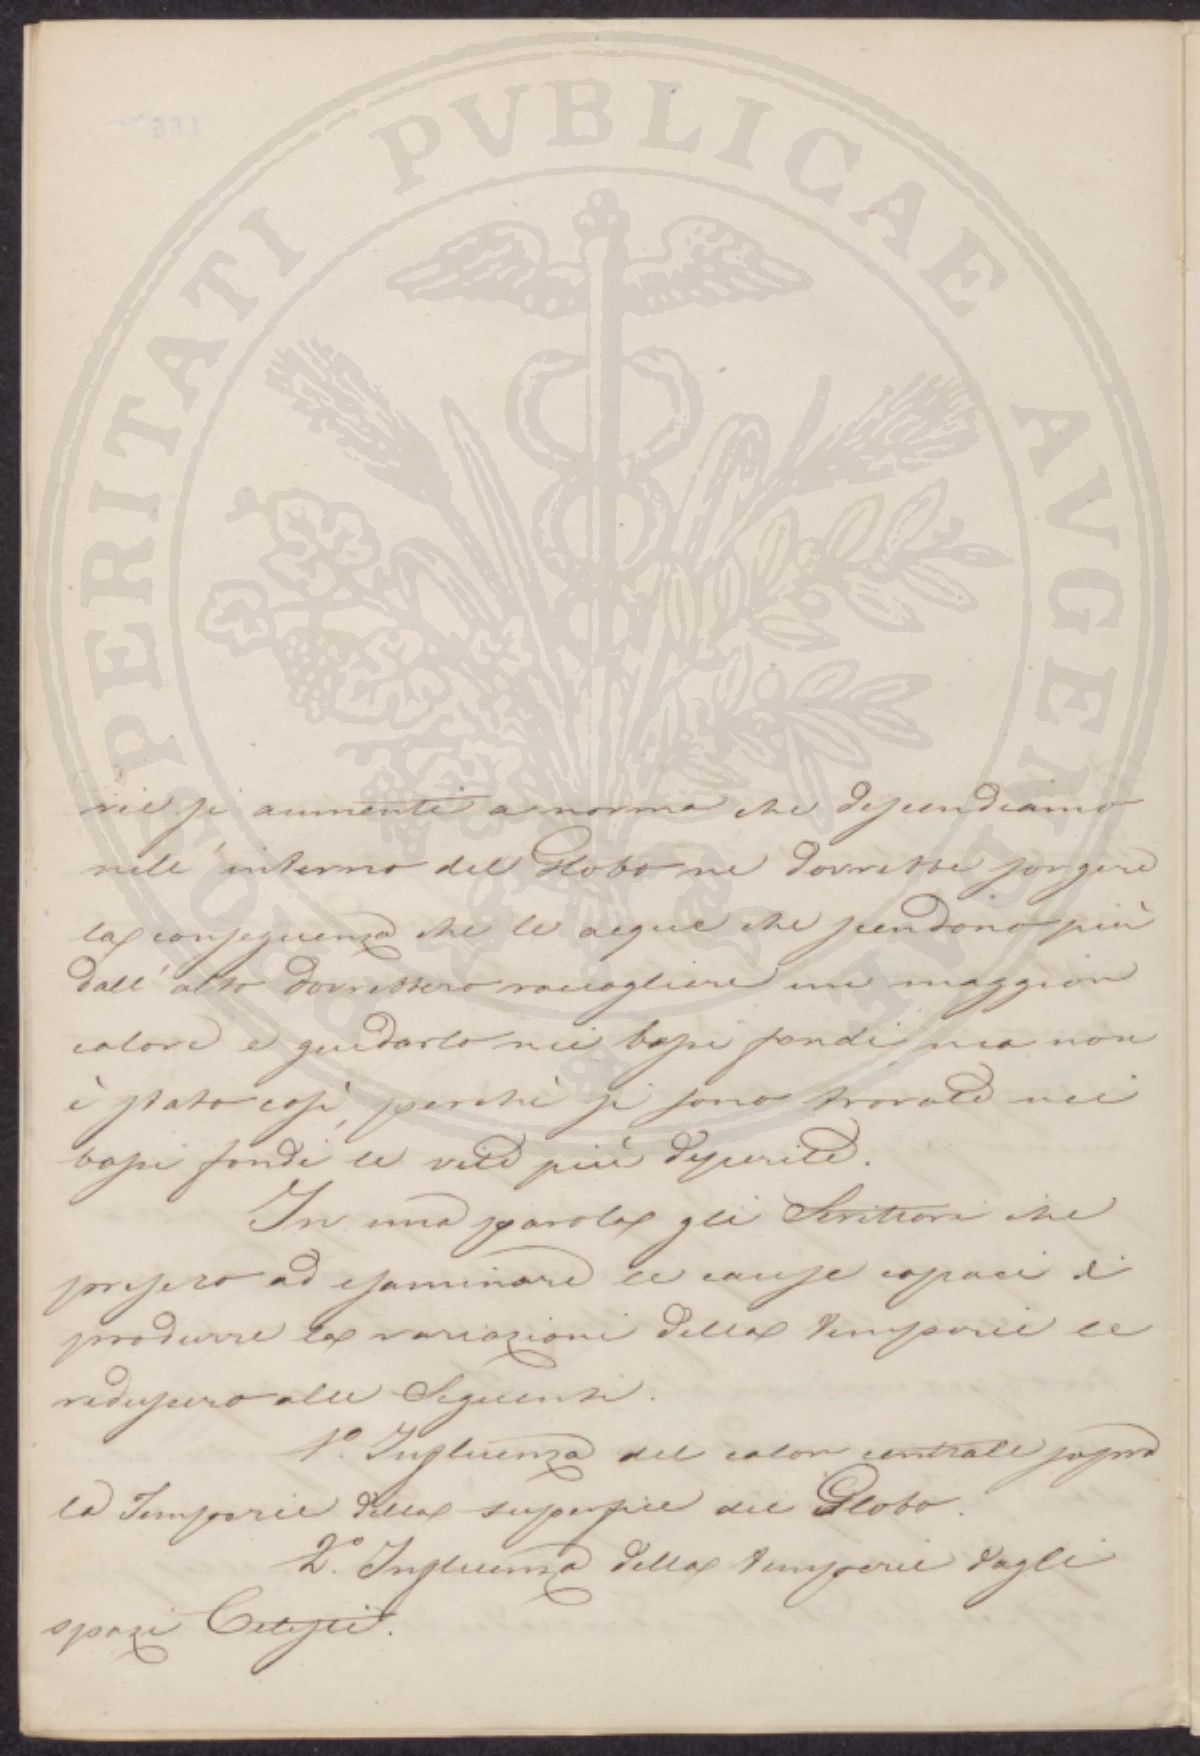 PROSPERITATI PVBLICAE AVGENDAE
rie si aumenti a norma che discendiamo
nell'interno del Globo ne dovrebbe sorgere
la conseguenza che le acque che scendono più
dall'alto dovrebbero raccogliere un maggior
calore e guidarlo nei bassi fondi ma non
è stato così, perchè si sono trovate nei
bassi fondi le viti più deperite.
In una parola gli Scrittori che
presero ad esaminare le cause capaci di
produrre la variazioni della temperie le
redussero alle Seguenti.
1º. Influenza del calor centrale sopra
la Temperie della superfice del Globo.
2º. Influenza della temperie dagli
spazi Celesti.